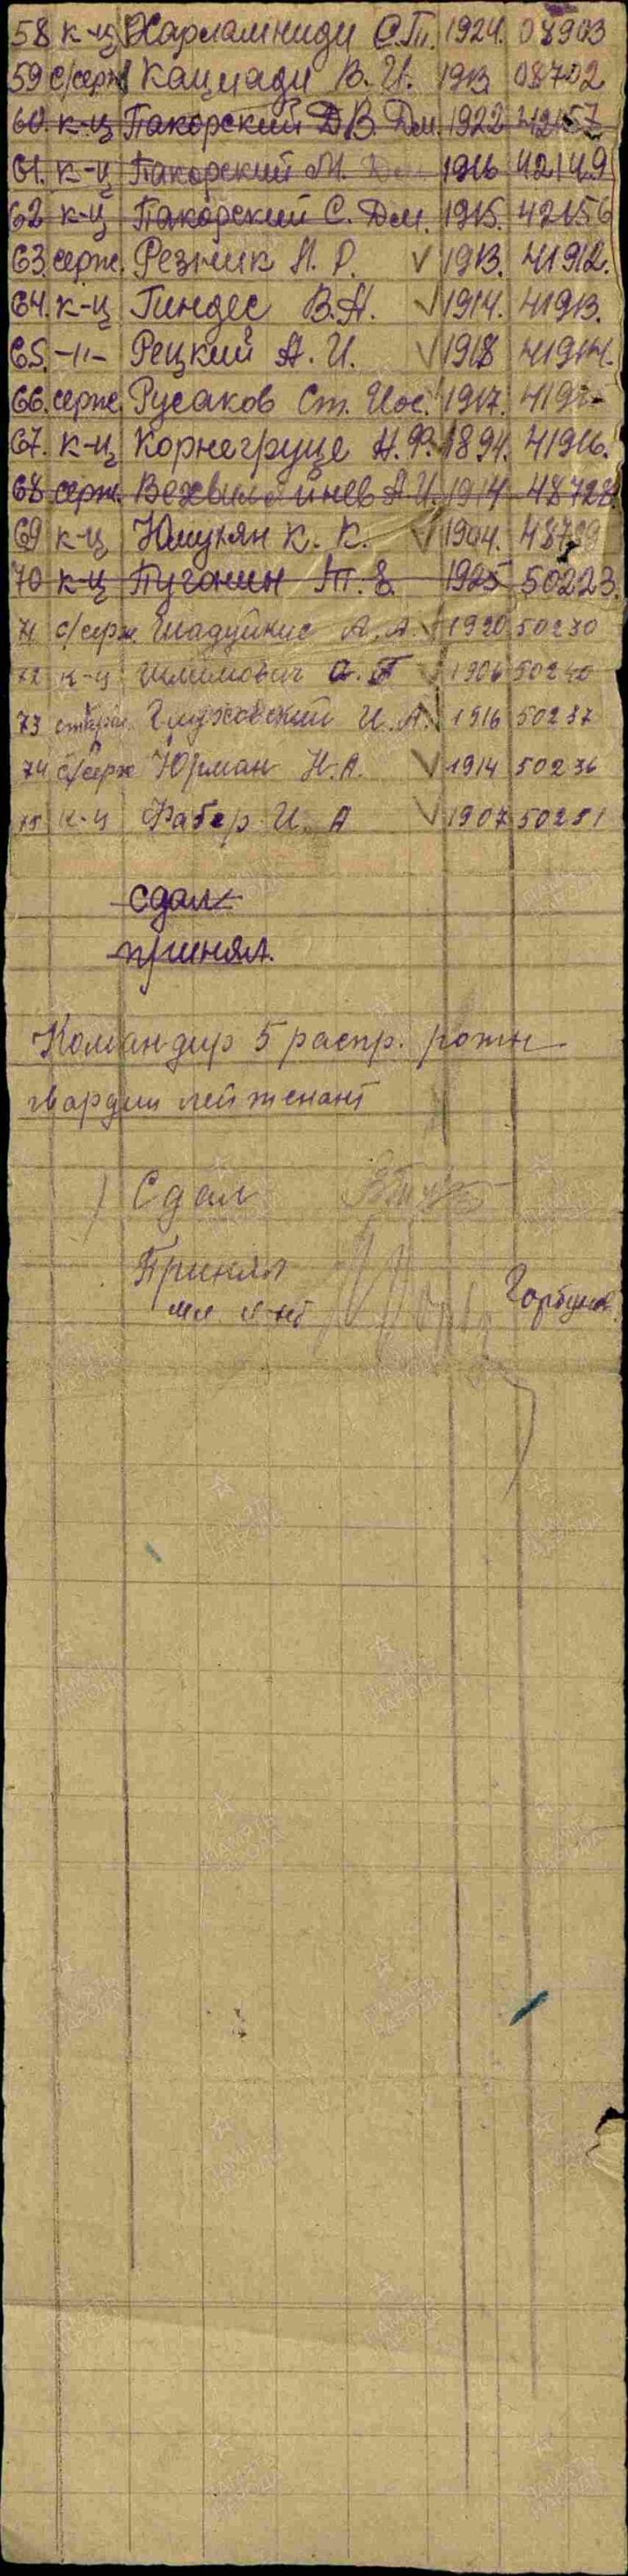 58 к-ц Харламниди С.П. 1924. 08903
59 с/серж Кациади В. И. 1913 08702
60. к-ц Пакорский В. Дм. 1922 42157
61. к-ц Пакорский М. 1916 42149
62 к-ц Пакорский С. Дм. 1915. 42156
63. серж. Резник Н. Р. V 1913. 41912.
64. к-ц Гиндес В.А. V 1914. 41913.
65. -"- Рецкий А. И. V 1918 41914.
66. серж. Русаков Ст. Иос. 1917.
67. к-ц Корнегруце Н. Ф. 1894. 41916.
68 серж. А И. 1914 48728.
69 к-ц К. К. V 1904.
70 к-ц Пуганин Т. Е. 1925 50223.
71 с/серж. Шадуйкис А. А. V 1920 50230
72 к-ц Шлимович V 1906 50240
73 Глуховский И. А. V 1916 50237
74 с/серж Юрман Н. А. V 1914 50236
75 к-ц Фабер И. А V 1907 50231
сдал
принял.
Командир 5 распр. роты
гвардии лейтенант
Сдал
Принял
мл. л-нт Горбунов
ПАМЯТЬ НАРОДА